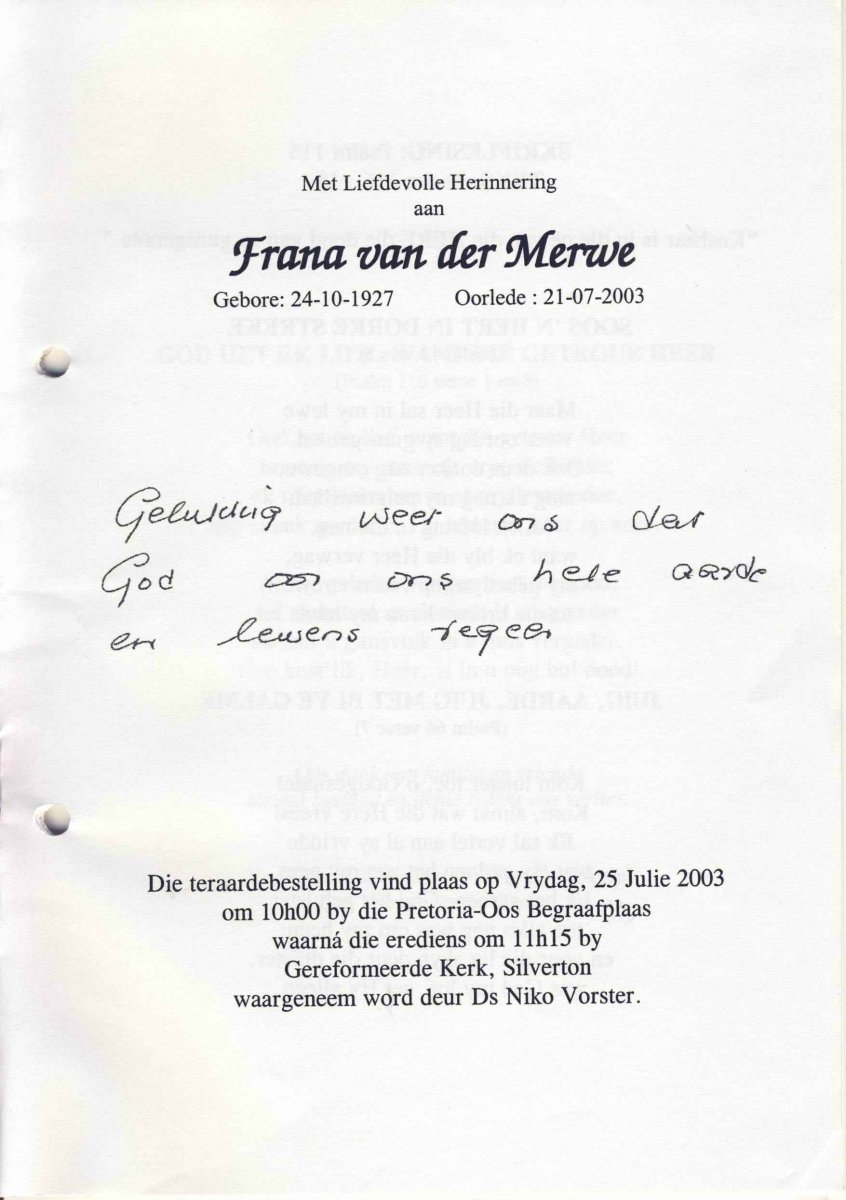 Met Liefdevolle Herinnering
aan
Frana van der Merwe
Gebore: 24-10-1927 Oorlede : 21-07-2003
Gelukkig weet ons dat
God oor ons hele aarde
en lewens regeer
Die teraardebestelling vind plaas op Vrydag, 25 Julie 2003
om 10h00 by die Pretoria-Oos Begraafplaas
waarná die erediens om 11h15 by
Gereformeerde Kerk, Silverton
waargeneem word deur Ds Niko Vorster.